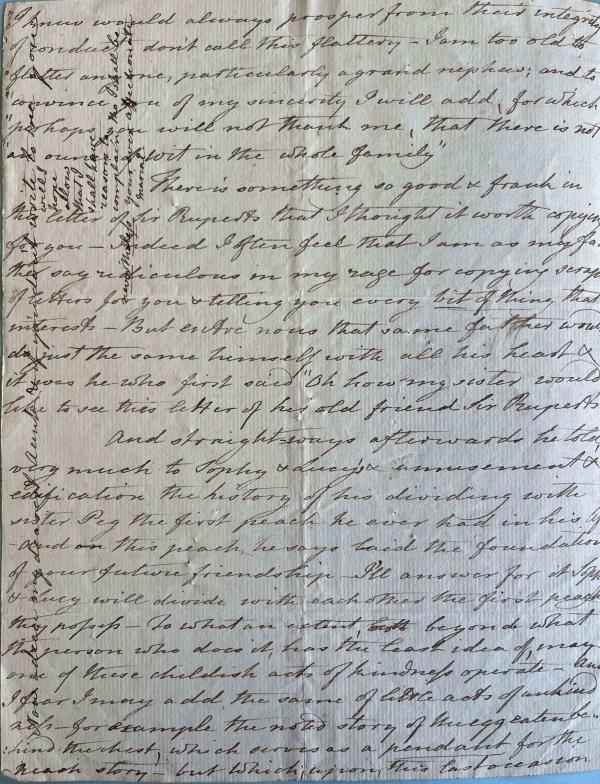 "I knew would always prosper from their integrity
"of conduct – don't call this flattery – I am too old to
"flatter any one, particularly a grand nephew; and to
"convince you of my sincerity I will add, for which
"perhaps you will not thank me, that there is not
"an ounce of wit in the whole family"
There is something so good & frank in
this letter of Sir Ruperts that I thought it worth copying
for you – indeed I often feel that I am as my fa
ther say ridiculous in my rage for copying scraps
of letters for you & telling you every bit of thing that
interests – But entre nous that same father would
do just the same himself with all his heart &
it was he who first said "Oh how my sister would
like to see this letter of his old friend Sir Ruperts
And straight ways afterwards he told
very much to Sophy & Lucy's amusement &
edification the history of his dividing with
sister Peg the first peach he ever had in his life
– and on this peach he says laid the foundation
of your future friendship – I'll answer for it Sophy
& Lucy will divide with each other the first peach
they possess – To what an extent, beyond what
the person who does it, has the least idea of, may
one of these childish acts of kindness operate – and
I fear I may add, the same of little acts of unkind
ness – for example the noted story of the egg eaten be-
:hind the chest, which serves as a pendant for the
peach story – but which, upon this last occasion
my dearest Aunt
if you don't write to me
would
home
allow
that I
shall have
reason to
complain
no I shall be
your ever affectionate